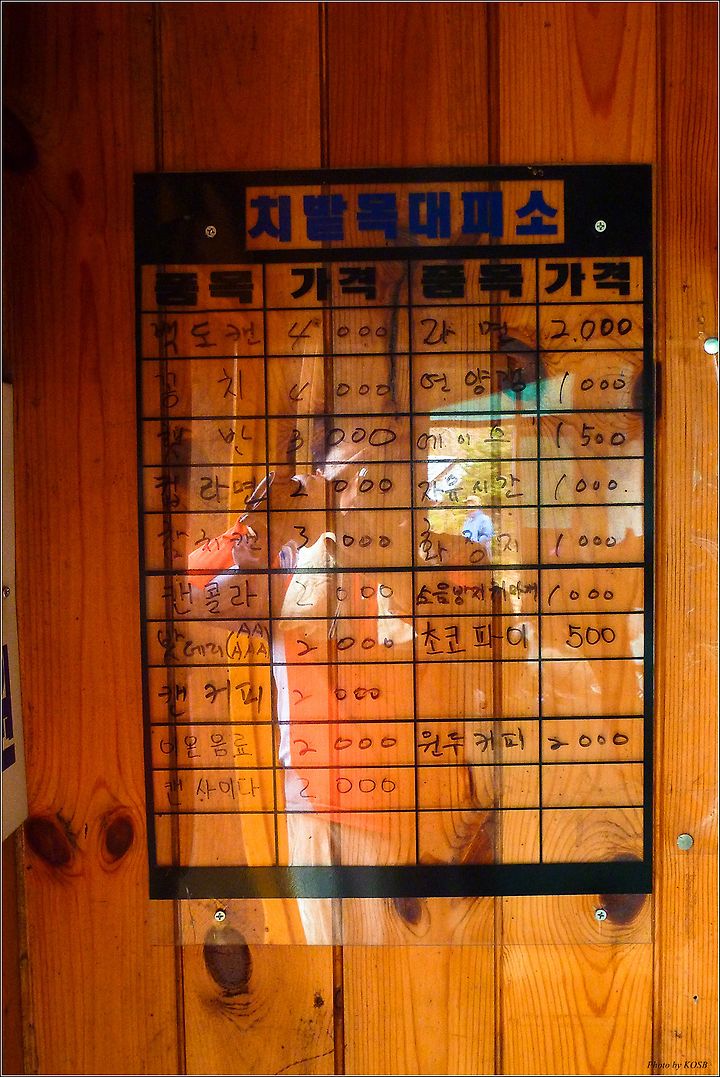 치밭목대피소
품목 가격 품목 가격
백도캔 4 000 라면 2.000
꽁치 4 000 연양갱 1 000
햇반 3 000 에이스 1 500
컵라면 2 000 자유시간 1 000.
참치캔 3 000 화장지 1 000
캔콜라 2 000 소음방지귀마개 1 000
밧데리(AA AAA 2 000 초코파이 500
캔커피 2 000
이온음료 2 000 원두커피 2 000
캔사이다 2 000
Photo by KOSB